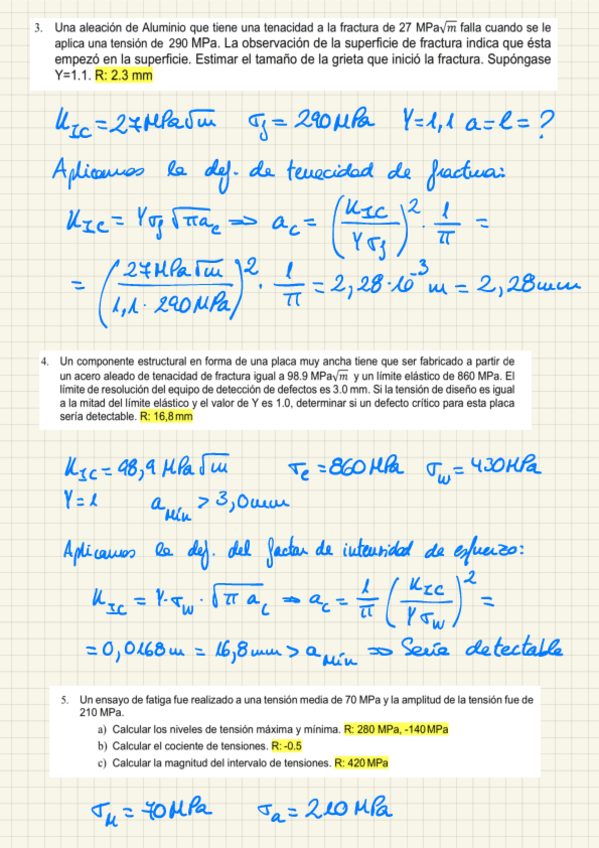 3. Una aleación de Aluminio que tiene una tenacidad a la fractura de 27 MPa√m falla cuando se le
aplica una tensión de 290 MPa. La observación de la superficie de fractura indica que ésta
empezó en la superficie. Estimar el tamaño de la grieta que inició la fractura. Supóngase
Y=1.1. R: 2.3 mm
K_IC = 27 MPa√m σ_f = 290 MPa Y = 1,1 a = l = ?
Aplicamos la def. de tenacidad de fractura:
K_IC = Yσ_f √(πa_c) => a_c = (K_IC / Yσ_f)² · 1/π =
= (27 MPa√m / 1,1 · 290 MPa)² · 1/π = 2,28·10⁻³ m = 2,28 mm
4. Un componente estructural en forma de una placa muy ancha tiene que ser fabricado a partir de
un acero aleado de tenacidad de fractura igual a 98.9 MPa√m y un límite elástico de 860 MPa. El
límite de resolución del equipo de detección de defectos es 3.0 mm. Si la tensión de diseño es igual
a la mitad del límite elástico y el valor de Y es 1.0, determinar si un defecto crítico para esta placa
sería detectable. R: 16,8 mm
K_IC = 98,9 MPa√m σ_e = 860 MPa σ_w = 430 MPa
Y = 1 a_Mín > 3,0 mm
Aplicamos la def. del factor de intensidad de esfuerzo:
K_IC = Y·σ_w · √(π a_c) => a_c = 1/π (K_IC / Yσ_w)² =
= 0,0168 m = 16,8 mm > a_Mín => Sería detectable
5. Un ensayo de fatiga fue realizado a una tensión media de 70 MPa y la amplitud de la tensión fue de
210 MPa.
a) Calcular los niveles de tensión máxima y mínima. R: 280 MPa, -140 MPa
b) Calcular el cociente de tensiones. R: -0.5
c) Calcular la magnitud del intervalo de tensiones. R: 420 MPa
σ_M = 70 MPa σ_a = 210 MPa